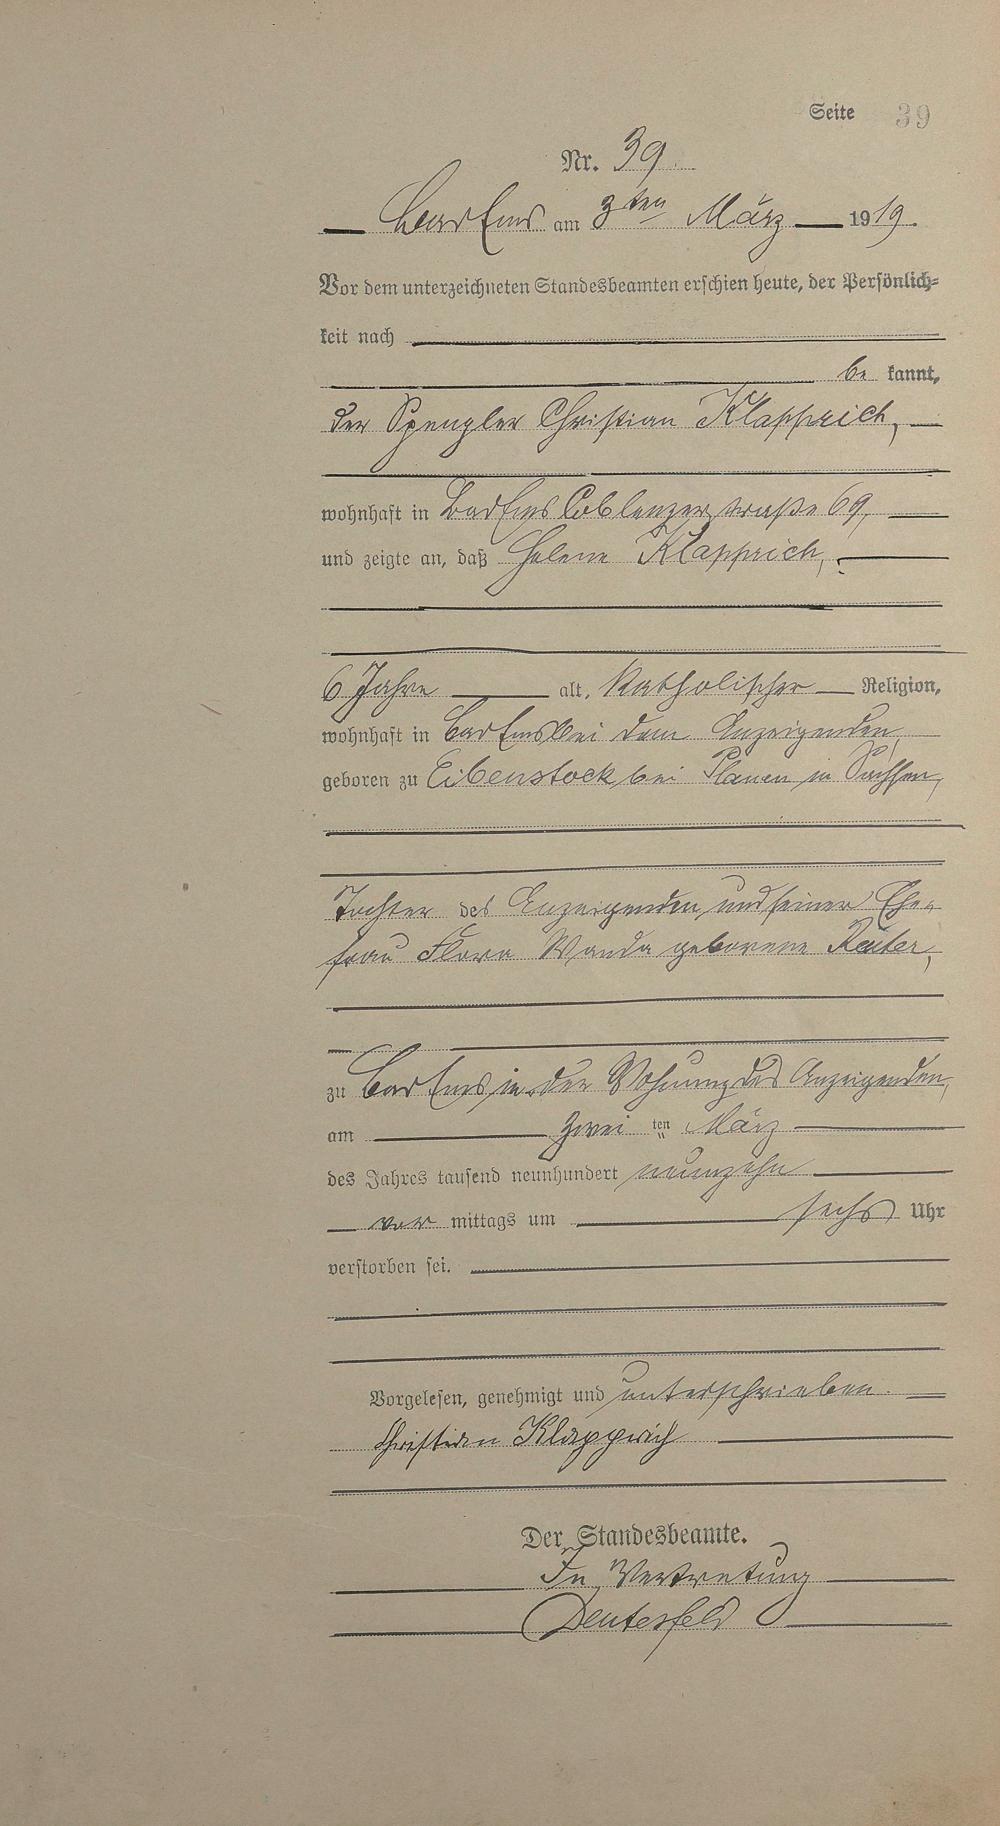 Seite 39
Nr. 39.
Bad Ems am 3ten März 1919.
Vor dem unterzeichneten Standesbeamten erschien heute, der Persönlich-
keit nach
be kannt,
der Spengler Christian Klapprich,
wohnhaft in Bad Ems Coblenzerstraße 69,
und zeigte an, daß Helene Klapprich,
6 Jahre alt, katholischer Religion,
wohnhaft in Bad Ems bei dem Anzeigenden,
geboren zu Eibenstock bei Plauen in Sachsen,
Tochter des Anzeigenden und seiner Ehe-
frau Flora Wanda geborene Reuter,
zu Bad Ems, in der Wohnung des Anzeigenden,
am zwei ten März
des Jahres tausend neunhundert neunzehn
vor mittags um sechs Uhr
verstorben sei.
Vorgelesen, genehmigt und unterschrieben.
Christian Klapprich
Der Standesbeamte.
In Vertretung